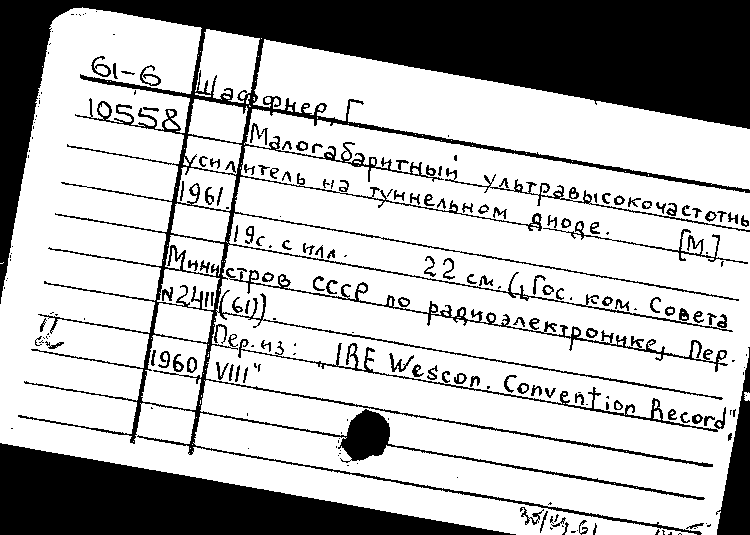 61-6 Шаффнер, Г
10558
Малогабаритный ультравысокочастотны
усилитель на туннельном диоде. [М.],
1961.
19с. с илл. 22 см. („Гос. ком. Совета
Министров СССР по радиоэлектронике„ Пер.
N2411(61)).
Пер. из: „IRE Wescon. Convention Record",
1960, VIII"